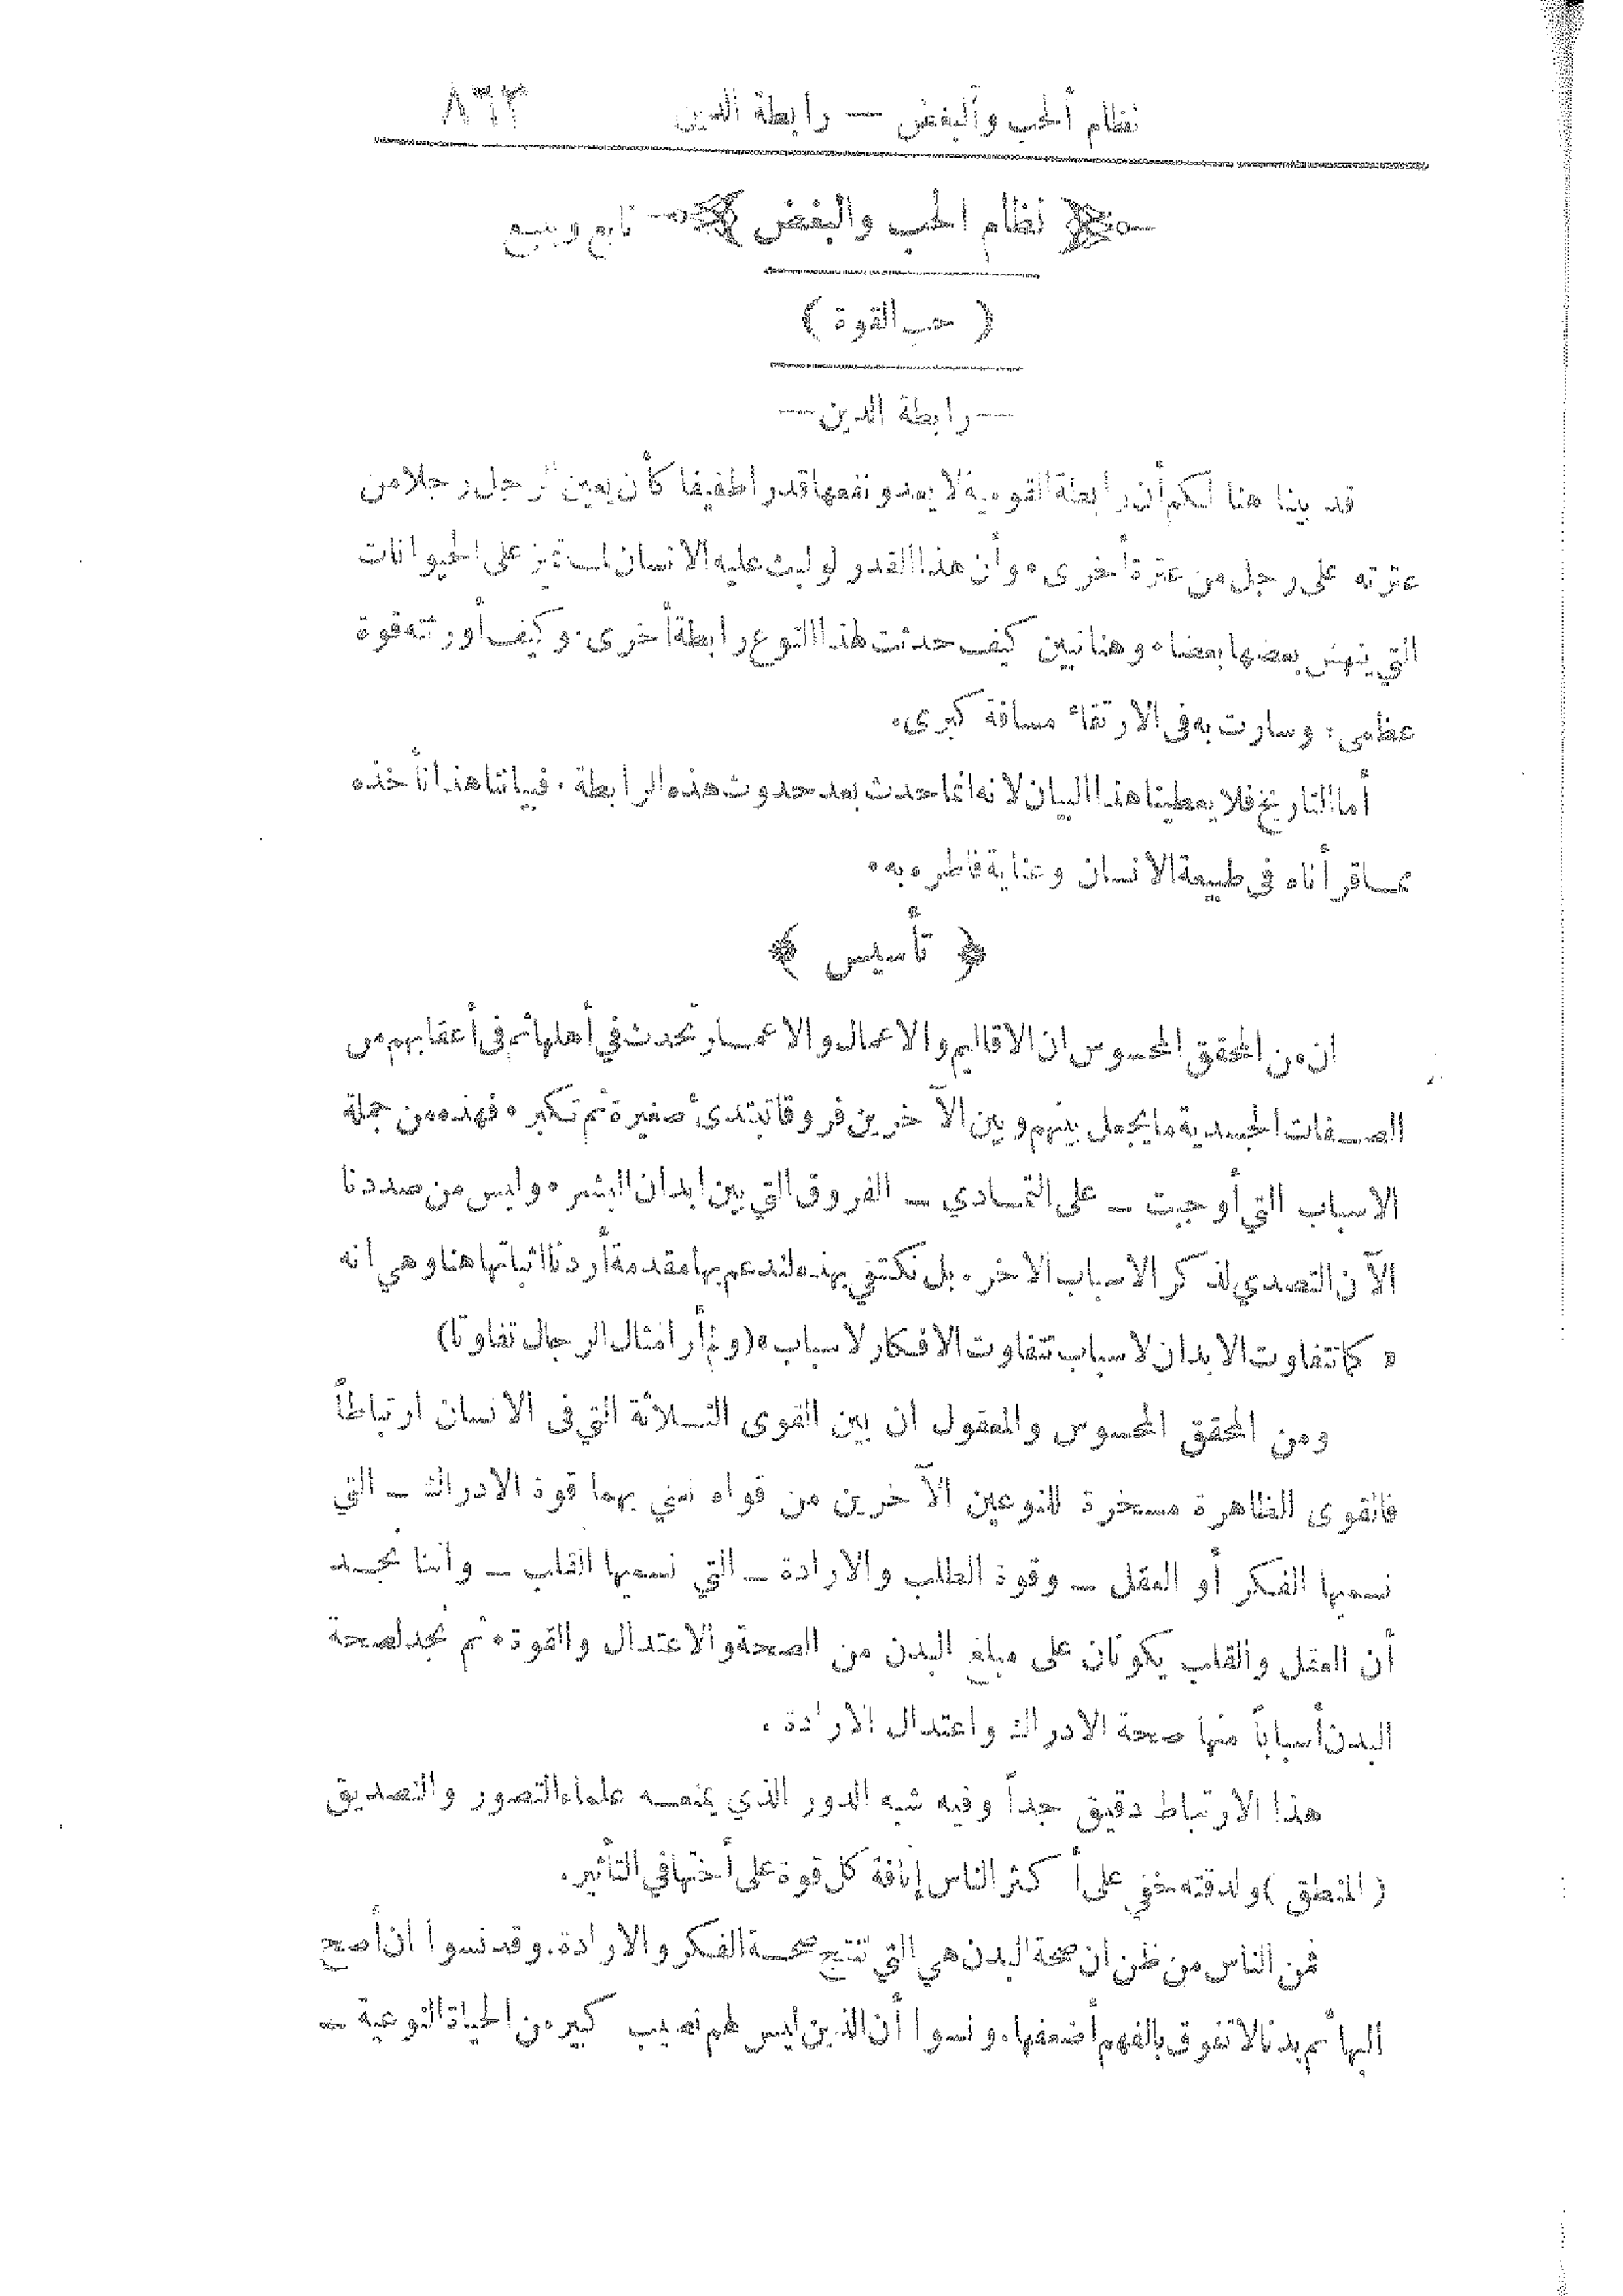 نظام الحب والبغض — رابطة الدين ٨٦٣
نظام الحب والبغض — تابع ويتبع
( حب القوة )
— رابطة الدين —
قد بينا هنا لكم أن رابطة القومية لا يعدو نفعها قدرا طفيفا كأن يعين رجل رجلا من
عترته على رجل من عترة أخرى . وأن هذا القدر لو لبث عليه الانسان لما تميز على الحيوانات
التي ينهش بعضها بعضا . وهنا نبين كيف حدثت لهذا النوع رابطة أخرى . وكيف أورثته قوة
عظمى . وسارت به في الارتقاء مسافة كبرى .
أما التاريخ فلا يعطينا هذا البيان لانه انما حدث بعد حدوث هذه الرابطة . فبياننا هذا نأخذه
مما قرأناه في طبيعة الانسان وعناية فاطره به .
﴿ تأسيس ﴾
ان من المحقق المحسوس ان الاقاليم والاعمال والاعمار تحدث في أهلها ثم في أعقابهم من
الصفات الجسدية ما يجعل بينهم وبين الآخرين فروقا تبتدئ صغيرة ثم تكبر . فهذه من جملة
الاسباب التي أوجبت — على التمادي — الفروق التي بين ابدان البشر . وليس من صددنا
الآن التصدي لذكر الاسباب الاخر . بل نكتفي بهذه لندعم بها مقدمة أردنا اثباتها هنا وهي انه
« كما تتفاوت الابدان لاسباب تتفاوت الافكار لاسباب » (ولم أر امثال الرجال تفاوتا)
ومن المحقق المحسوس والمعقول ان بين القوى الثلاثة التي في الانسان ارتباطاً
فالقوى الظاهرة مسخرة للنوعين الآخرين من قواه نعني بهما قوة الادراك — التي
نسميها الفكر أو العقل — وقوة الطلب والارادة — التي نسميها القلب — واننا نجد
أن العقل والقلب يكونان على مبلغ البدن من الصحة والاعتدال والقوة . ثم نجد لصحة
البدن أسباباً منها صحة الادراك واعتدال الارادة .
هذا الارتباط دقيق جداً وفيه شبه الدور الذي يمنعه علماء التصور والتصديق
( المنطق ) ولدقته خفي على أكثر الناس إنافة كل قوة على أختها في التأثير .
فمن الناس من ظن ان صحة البدن هي التي تنتج صحة الفكر والارادة . وقد نسوا ان أصح
البهائم بدنا لا تفوق بالفهم أضعفها . ونسوا أن الذين ليس لهم نصيب كبير من الحياة النوعية —